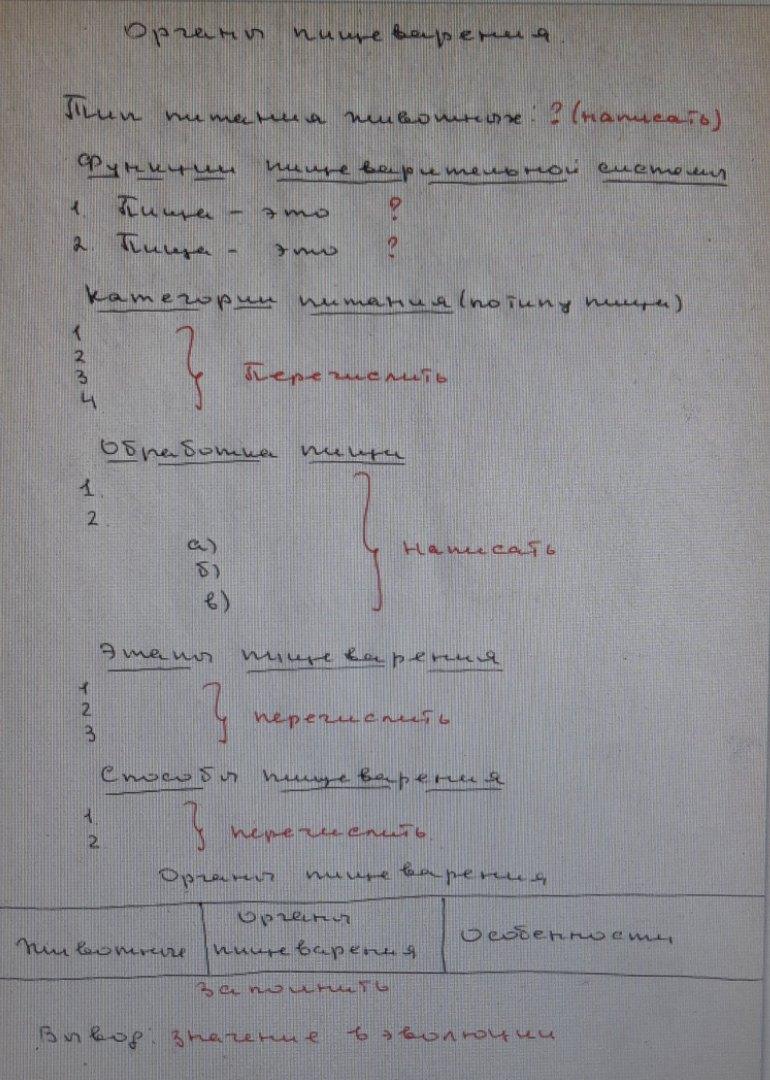 Органы пищеварения.
Тип питания животных: ? (написать)
Функции пищеварительной системы
1. Пища - это ?
2. Пища - это ?
Категории питания (по типу пищи)
1
2
3
4
Перечислить
Обработка пищи
1.
2.
а)
б)
в)
написать
Этапы пищеварения
1
2
3
перечислить
Способы пищеварения
1.
2.
перечислить.
Органы пищеварения
Животные
Органы
пищеварения
Особенности
заполнить
Вывод: значение в эволюции